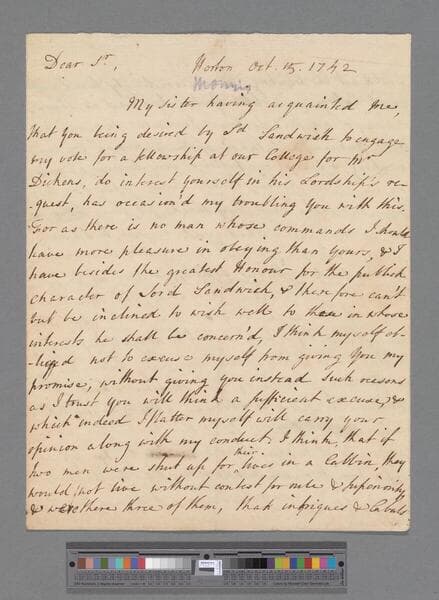 Dear Sr, Horton Oct. 15. 1742
My Sister having acquainted me,
that you being desired by Ld Sandwich to engage
my vote for a fellowship at our College for Mr
Dickens, do interest yourself in his Lordship's re-
-quest, has occasion'd my troubling you with this.
For as there is no man whose commands I should
have more pleasure in obeying than yours, & I
have besides the greatest Honour for the publick
character of Lord Sandwich, & therefore can't
but be inclined to wish well to those in whose
interests he shall be concern'd, I think myself ob-
-liged not to excuse myself from giving you my
promise, without giving you instead such reasons
as I trust you will think a sufficient excuse, &
which indeed I flatter myself will carry your
opinion along with my conduct. I think, that if
two men were shut up for their lives in a Cabbin, they
would not live without contest for rule & superiority,
& were there three of them, that intrigues & Cabals